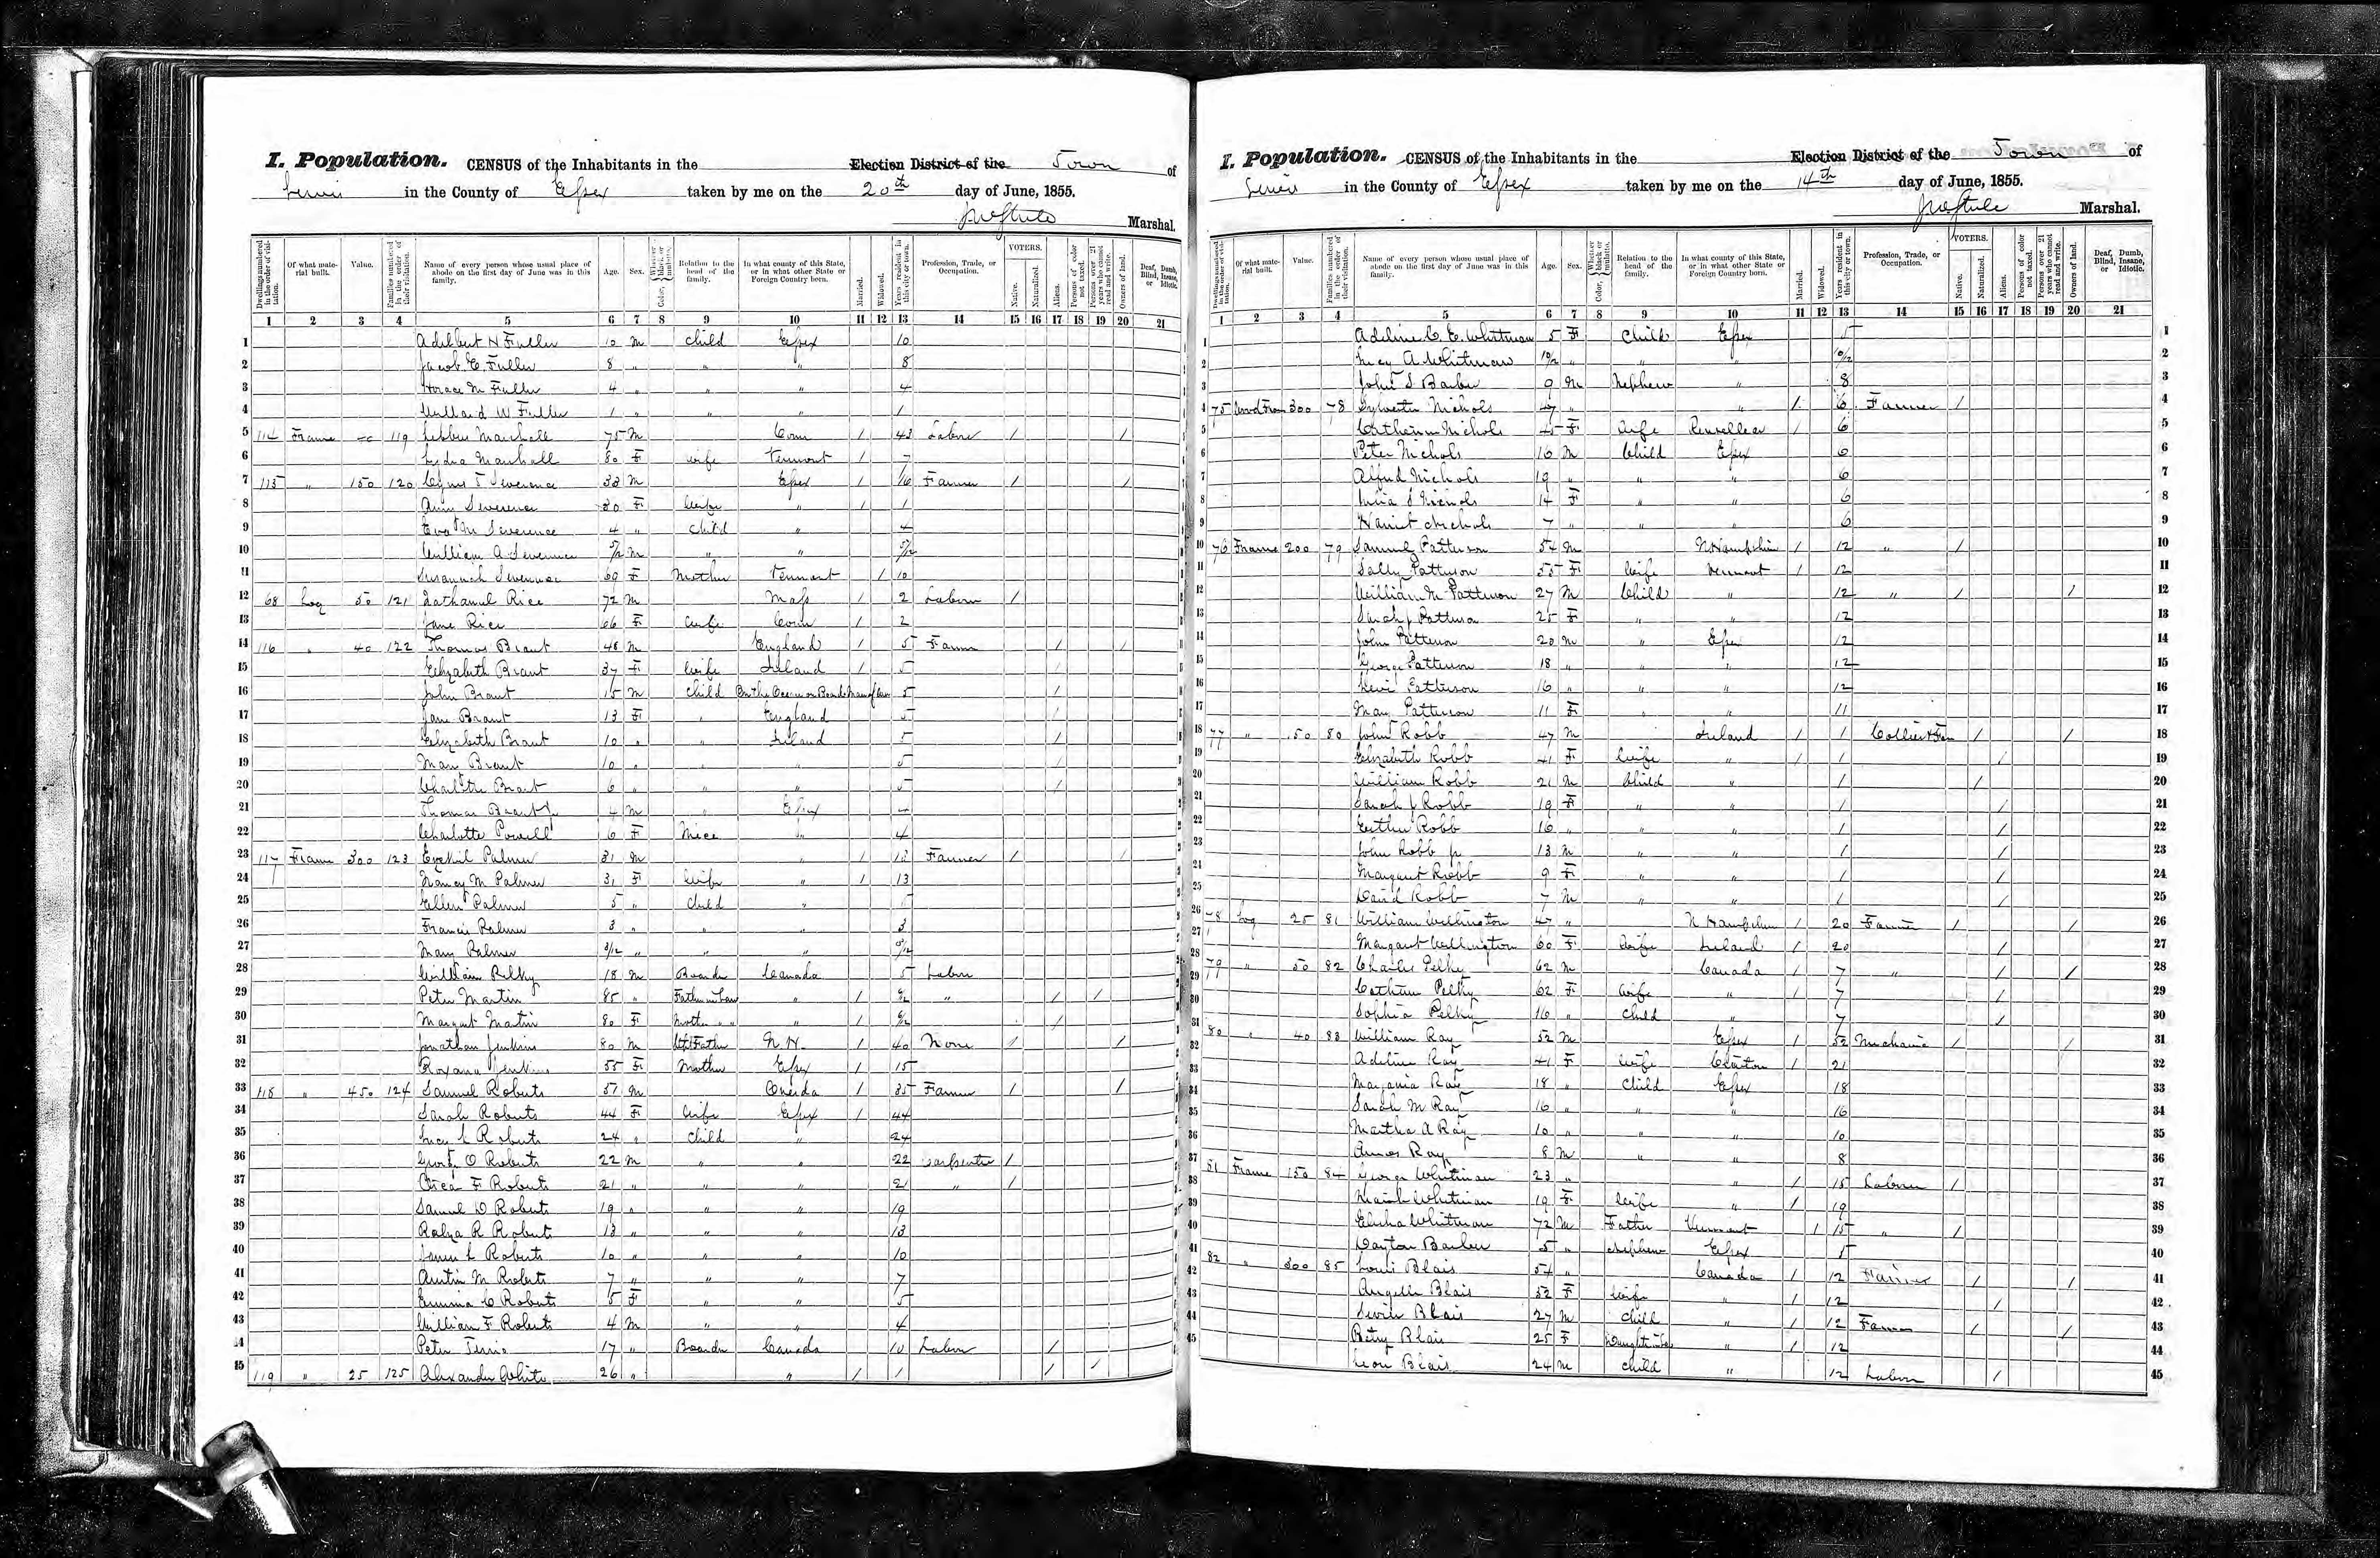 I. Population. CENSUS of the Inhabitants in the Election District of the Town of
Lewis in the County of Essex taken by me on the 20th day of June, 1855.
Marshal.
Dwellings numbered in the order of visitation. Of what material built. Value. Families numbered in the order of their visitation. Name of every person whose usual place of abode on the first day of June was in this family. Age. Sex. Color, Whether black or mulatto. Relation to the head of the family. In what county of this State, or in what other State or Foreign Country born. Married. Widowed. Years resident in this city or town. Profession, Trade, or Occupation. VOTERS. Native. Naturalized. Aliens. Persons of color not taxed. Persons over 21 years who cannot read and write. Owners of land. Deaf, Dumb, Blind, Insane, or Idiotic.
1 2 3 4 5 6 7 8 9 10 11 12 13 14 15 16 17 18 19 20 21
1 Adelbert N Fuller 10 M Child Essex 10
2 Jacob E Fuller 8 " " " 8
3 Horace M Fuller 4 " " " 4
4 Willard W Fuller 1 " " " 1
5 114 Frame 119 Marshall 75 M Conn / 43 Labor / /
6 Lydia Marshall 80 F Wife Vermont / 7
7 115 " 150 120 Cyrus T Severence 33 M Essex / Farmer / /
8 Ann Severence 30 F Wife " / 1
9 Severence 4 " Child " 4
10 William A Severence 5/12 M " " 5/12
11 Susannah Severence 69 F Mother Vermont / 10
12 68 Log 50 121 Nathaniel Rice 72 M Mass / 2 Labor /
13 Jane Rice 66 F Wife Conn / 2
14 116 " 40 122 Thomas Brant 48 M England / 5 Farmer / /
15 Elizabeth Brant 37 F Wife Ireland / 5 /
16 John Brant 15 M Child On the Ocean on Board 5 /
17 Jane Brant 13 F " England 5 /
18 Elizabeth Brant 10 " " Ireland 5 /
19 Mary Brant 10 " " " 5 /
20 Charlotte Brant 6 " " " 5 /
21 Thomas Brant Jr 4 M " Essex 4
22 Charlotte Powell 6 F Niece " 4
23 117 Frame 300 123 Ezekiel Palmer 31 M " / 13 Farmer / /
24 Nancy M Palmer 31 F Wife " / 13
25 Ellen Palmer 5 " Child " 5
26 Francis Palmer 3 " " " 3
27 Mary Palmer 3/12 " " " 3/12
28 William Pelky 18 M Boarder Canada 5 Labor
29 Peter Martin 85 " Father in Law " / " / /
30 Margaret Martin 80 F Mother " " " / /
31 Jonathan Jenkins 80 M Father N. H. / 40 None / /
32 Roxana Jenkins 55 F Mother Essex / 15
33 118 " 450 124 Samuel Roberts 57 M Oneida / 35 Farmer / /
34 Sarah Roberts 44 F Wife Essex / 44
35 Lucy L Roberts 24 " Child " 24
36 O Roberts 22 M " " 22 Carpenter /
37 F Roberts 21 " " " 21 " /
38 Samuel D Roberts 19 " " " 19
39 R Roberts 13 " " " 13
40 James L Roberts 10 " " " 10
41 Austin M Roberts 7 " " " 7
42 Emma C Roberts 5 F " " 5
43 William F Roberts 4 M " " 4
44 Peter 17 " Boarder Canada 10 Labor /
45 119 " 25 125 Alexander White 26 " " / 1 / /
I. Population. CENSUS of the Inhabitants in the Election District of the Town of
Lewis in the County of Essex taken by me on the 14th day of June, 1855.
Marshal.
Dwellings numbered in the order of visitation. Of what material built. Value. Families numbered in the order of their visitation. Name of every person whose usual place of abode on the first day of June was in this family. Age. Sex. Color, Whether black or mulatto. Relation to the head of the family. In what county of this State, or in what other State or Foreign Country born. Married. Widowed. Years resident in this city or town. Profession, Trade, or Occupation. VOTERS. Native. Naturalized. Aliens. Persons of color not taxed. Persons over 21 years who cannot read and write. Owners of land. Deaf, Dumb, Blind, Insane, or Idiotic.
1 2 3 4 5 6 7 8 9 10 11 12 13 14 15 16 17 18 19 20 21
1 Adeline C. E. Whitman 5 F Child Essex 5 1
2 Lucy A Whitman 10/12 " " " 10/12 2
3 John S Barber 9 M Nephew " 8 3
4 75 300 78 Sylvester Nichols 47 " " / 6 Farmer / 4
5 Catherine Nichols 45 F Wife Rensellear / 6 5
6 Peter Nichols 16 M Child Essex 6 6
7 Alfred Nichols 19 " " " 6 7
8 Nichols 14 F " " 6 8
9 Harriet Nichols 7 " " " 6 9
10 76 Frame 200 79 Samuel Patterson 54 M N Hampshire / 12 " / 10
11 Sally Patterson 55 F Wife Vermont / 12 11
12 William M Patterson 27 M Child " 12 " / / 12
13 Sarah J Patterson 25 F " " 12 13
14 John Patterson 20 M " Essex 12 14
15 George Patterson 18 " " " 12 15
16 Levi Patterson 16 " " " 12 16
17 Mary Patterson 11 F " " 11 17
18 77 " 150 80 John Robb 47 M Ireland / 1 Collier & Far / / 18
19 Elizabeth Robb 41 F Wife " / 1 / 19
20 William Robb 21 M Child " 1 / 20
21 Sarah J Robb 19 F " " 1 / 21
22 Esther Robb 16 " " " 1 / 22
23 John Robb jr 13 M " " 1 / 23
24 Margaret Robb 9 F " " 1 / 24
25 David Robb 7 M " " 1 / 25
26 78 Log 25 81 William Wellington 47 " N Hampshire / 20 Farmer / / 26
27 Margaret Wellington 60 F Wife Ireland / 20 / 27
28 79 " 50 82 Charles Pelky 62 M Canada / 7 " / / 28
29 Pelky 62 F Wife " / 7 / 29
30 Sophia Pelky 16 " Child " 7 / 30
31 80 " 40 83 William Ray 52 M Essex / 52 Mechanic / / 31
32 Adeline Ray 41 F Wife Clinton / 21 32
33 Ray 18 " Child Essex 18 33
34 Sarah M Ray 16 " " " 16 34
35 Martha A Ray 10 " " " 10 35
36 Amos Ray 8 M " " 8 36
37 81 Frame 150 84 George Whitman 23 " " / 15 Labor / 37
38 Whitman 19 F Wife " / 19 38
39 Elisha Whitman 72 M Father Vermont / 15 " / 39
40 Dayton Barber 5 " Nephew Essex 5 40
41 82 " 300 85 Louis Blais 54 " Canada / 12 Farmer / / 41
42 Blais 52 F Wife " / 12 / 42
43 Blais 27 M Child " / 12 Farmer / / 43
44 Betsy Blais 25 F Daught in Law " / 12 44
45 Blais 24 M Child " 12 Labor / 45